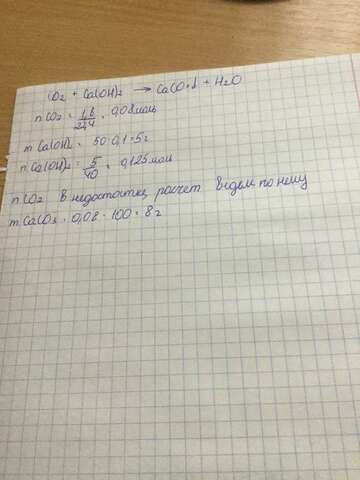 CO2 + Ca(OH)2 → CaCO3↓ + H2O
nCO2 = 1,8/22,4 = 0,08 моль
mCa(OH)2 = 50·0,1 = 5г
nCa(OH)2 = 5/40 = 0,125 моль
nCO2 в недостатке, расчет ведем по нему
mCaCO3 = 0,08 · 100 = 8г